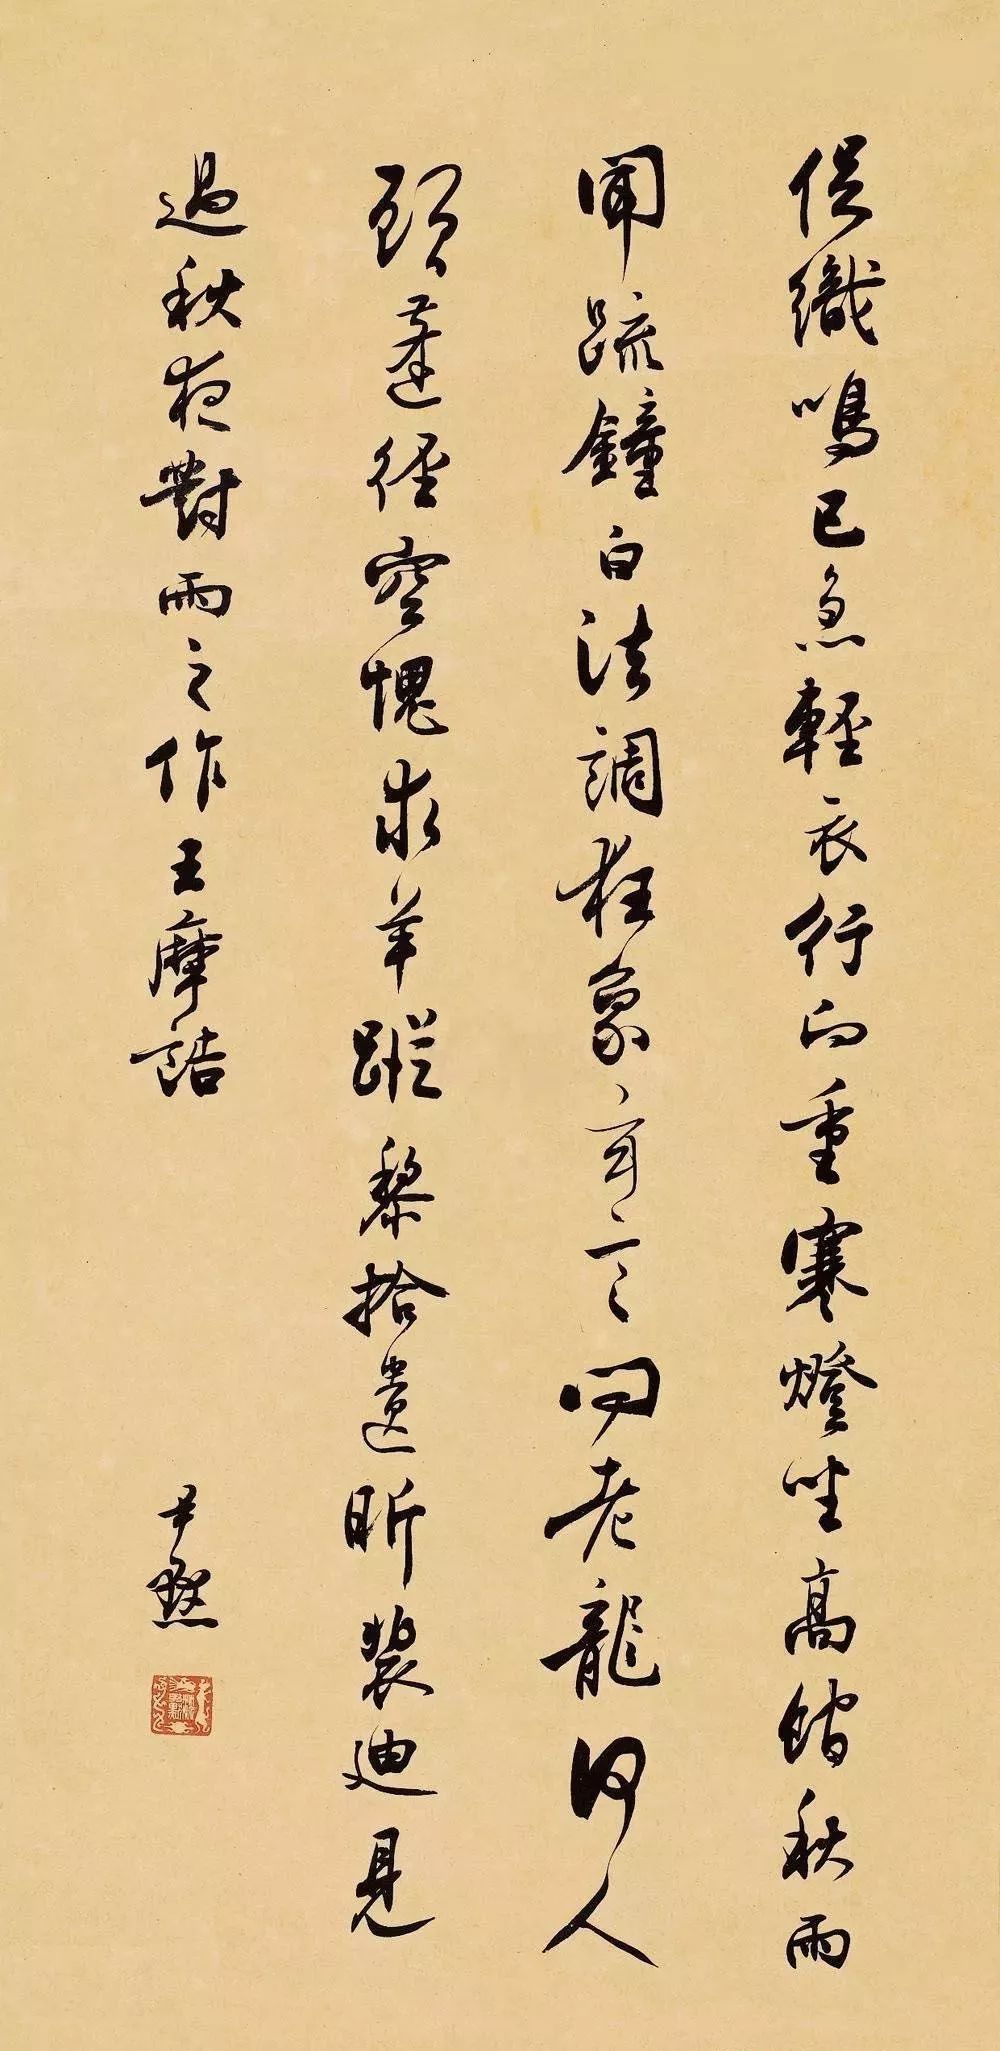 促織鳴已急輕衣行向重寒燈坐高館秋雨
聞疏鐘白法調狂象玄言問老龍何人
顧蓬徑空愧求羊蹤黎拾遺昕裴迪見
過秋夜對雨之作王摩詰
尹默